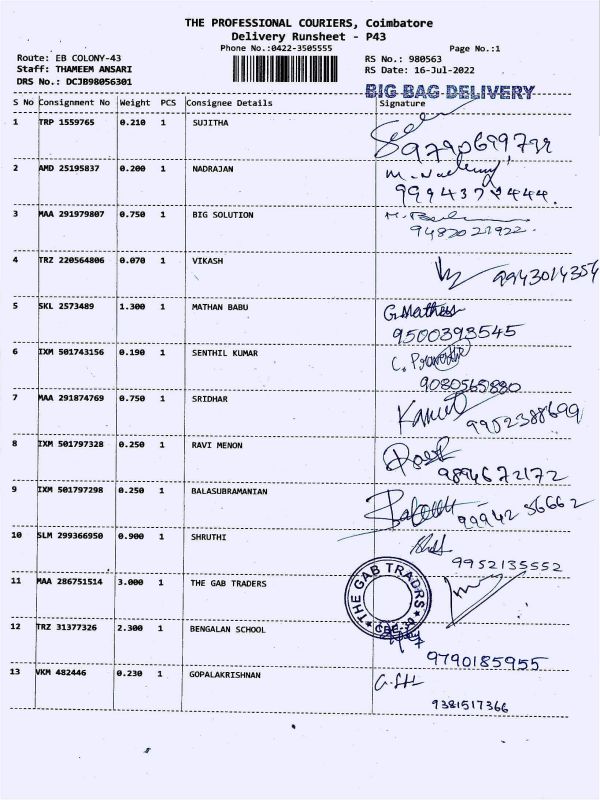 THE PROFESSIONAL COURIERS, Coimbatore
Delivery Runsheet - P43
Phone No.:0422-3505555
Page No.:1
Route: EB COLONY-43
RS No.: 980563
Staff: THAMEEM ANSARI
RS Date: 16-Jul-2022
DRS No.: DCJB98056301
BIG BAG DELIVERY
S No Consignment No Weight PCS Consignee Details Signature
1 TRP 1559765 0.210 1 SUJITHA
2 AMD 25195837 0.200 1 NADRAJAN
3 MAA 291979807 0.750 1 BIG SOLUTION
4 TRZ 220564806 0.070 1 VIKASH
9943014354
5 SKL 2573489 1.300 1 MATHAN BABU
9500393545
6 IXM 501743156 0.190 1 SENTHIL KUMAR
9080565880
7 MAA 291874769 0.750 1 SRIDHAR
9952388699
8 IXM 501797328 0.250 1 RAVI MENON
9894672172
9 IXM 501797298 0.250 1 BALASUBRAMANIAN
99942 36662
10 SLM 299366950 0.900 1 SHRUTHI
9952135552
11 MAA 286751514 3.000 1 THE GAB TRADERS
THE GAB TRADRS
CBE-39
12 TRZ 31377326 2.300 1 BENGALAN SCHOOL
9790185955
13 VKM 482446 0.230 1 GOPALAKRISHNAN
9381517366